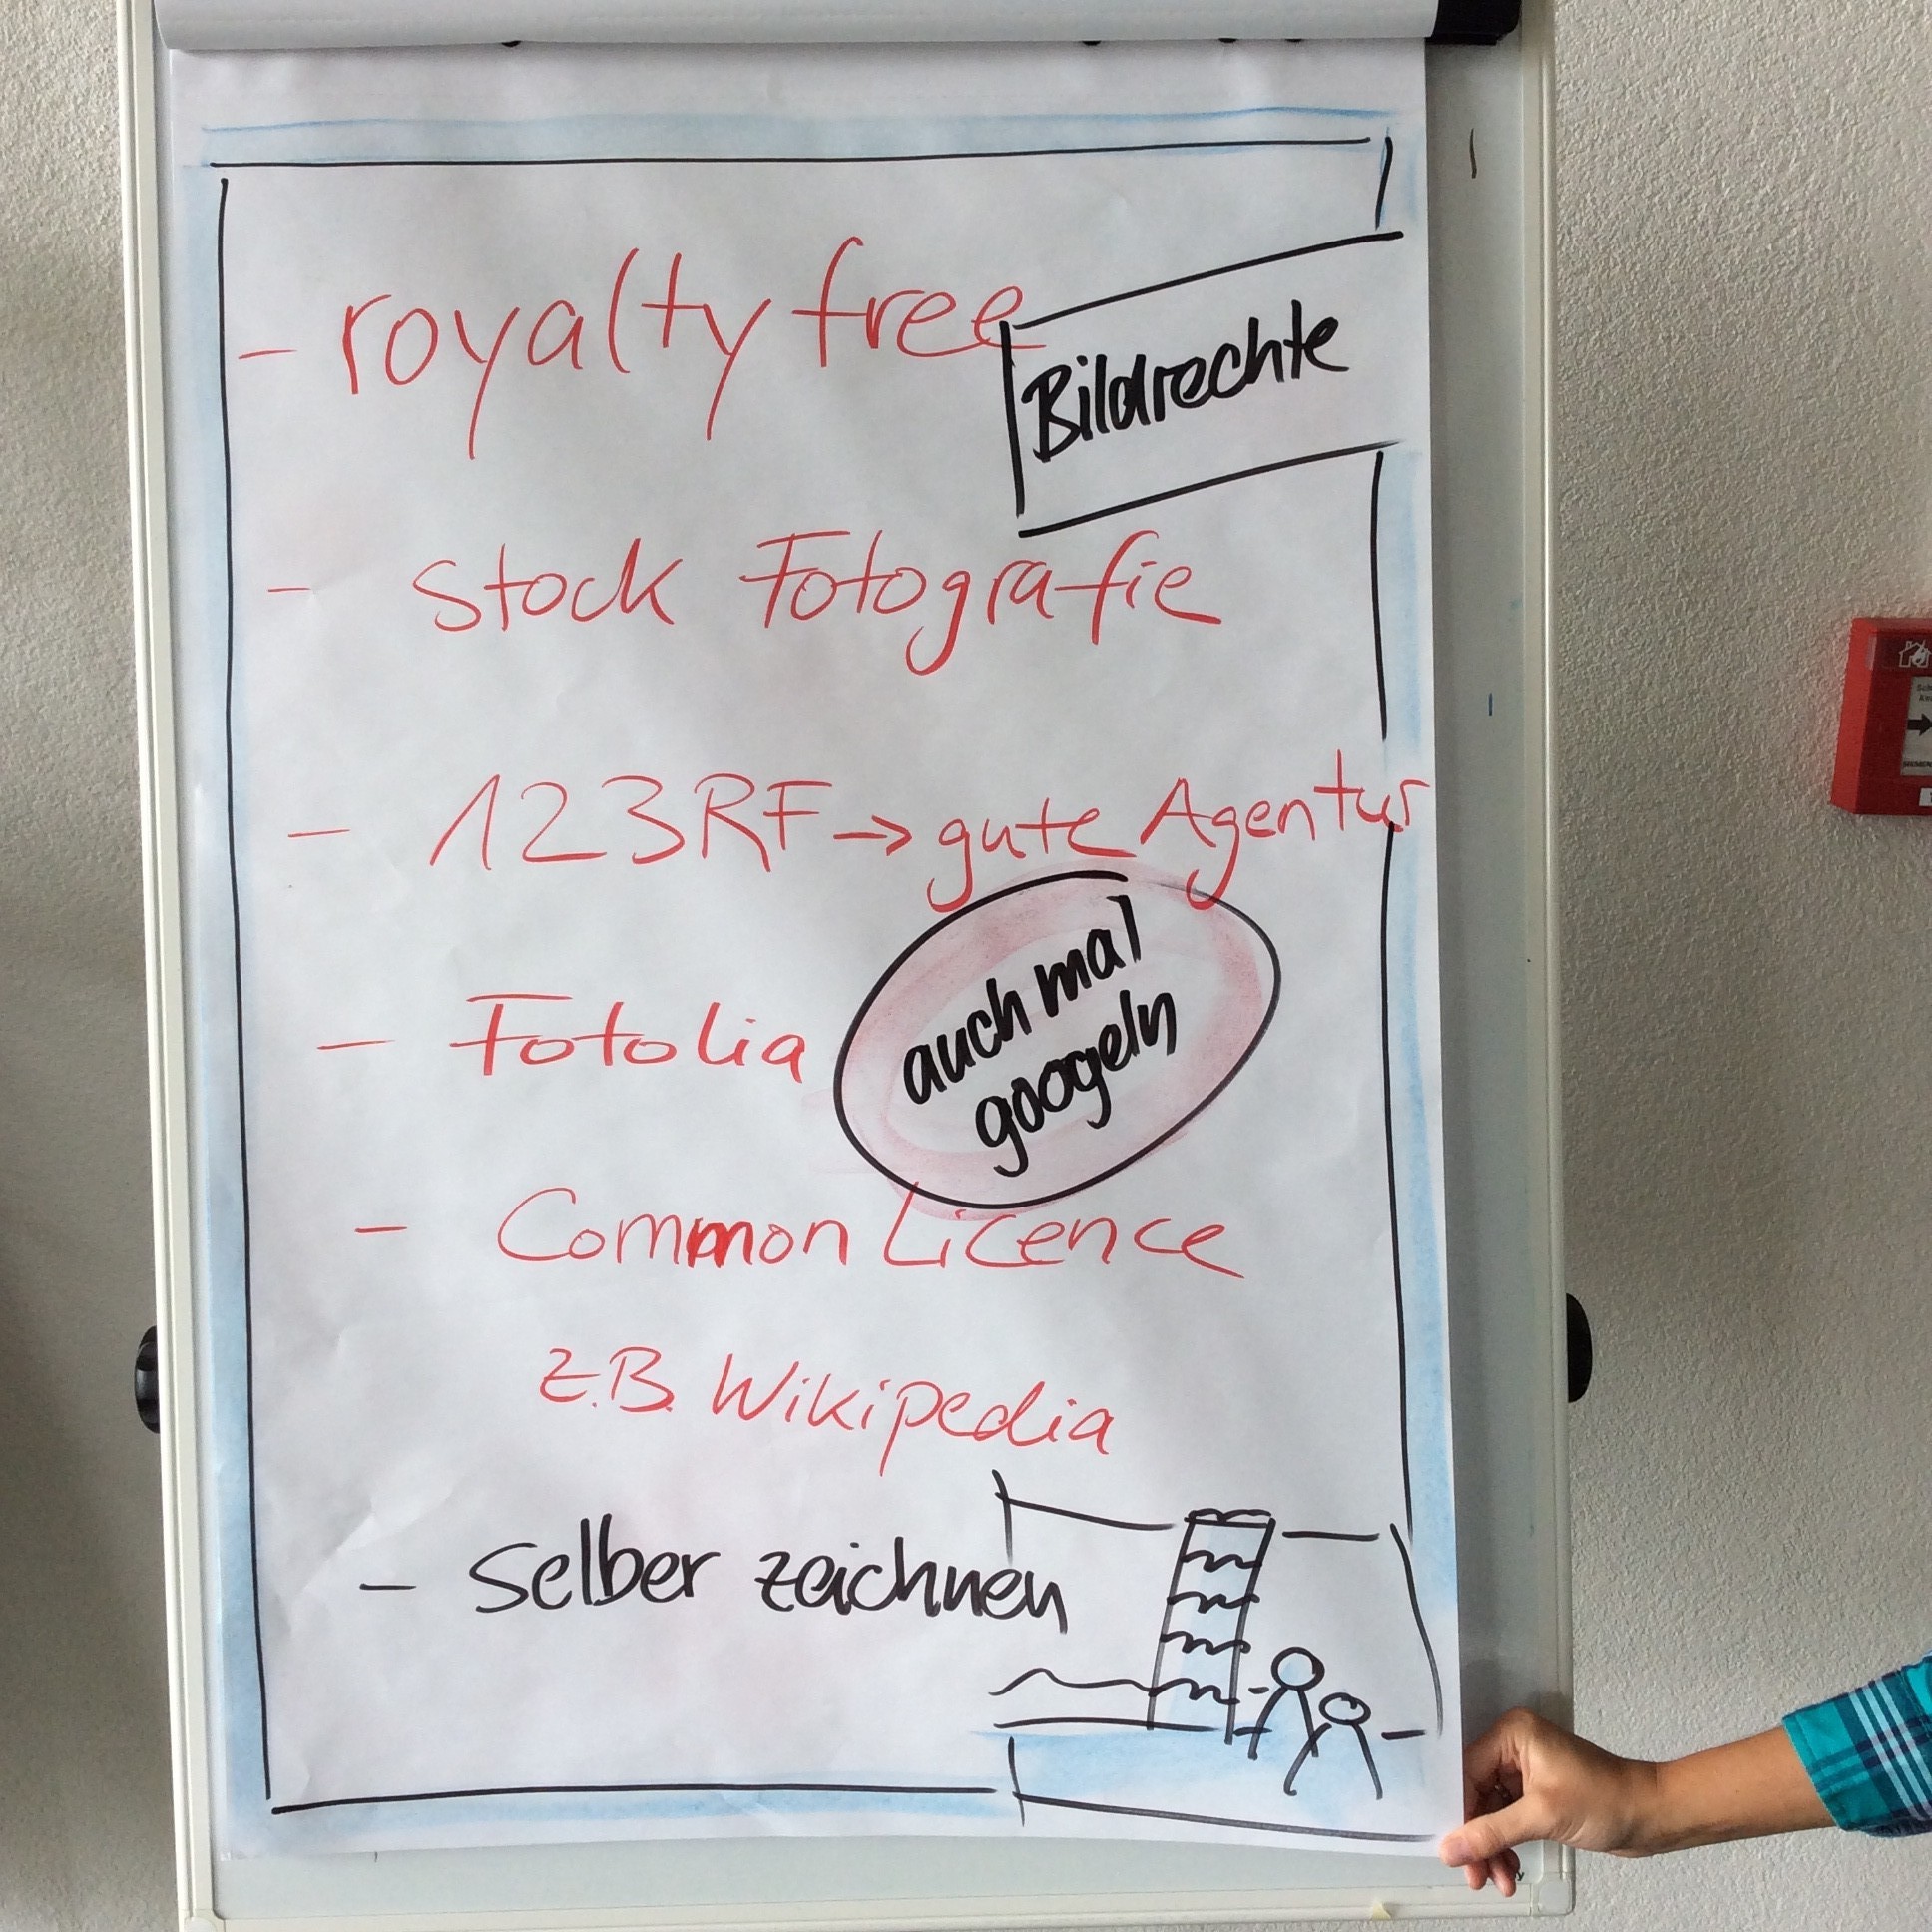 - royalty free
Bildrechte
- Stock Fotografie
- 123RF → gute Agentur
auch mal
googeln
- Fotolia
- Common Licence
z.B. Wikipedia
- selber zeichnen